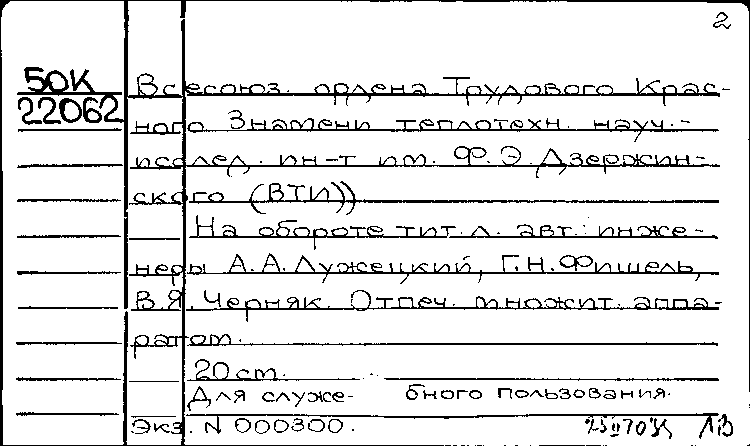 2
БОК
22062
Всесоюз. ордена Трудового Крас-
ного Знамени теплотехн. науч.-
исслед. ин-т им. Ф.Э.Дзержин-
ского (ВТИ))
На обороте тит.л. авт.: инже-
неры А.А.Лужецкий, Г.Н.Фишель,
В.Я.Черняк. Отпеч. множит. аппа-
ратом.
20 см.
Для служебного пользования.
Экз. N 000300.
ЛВ